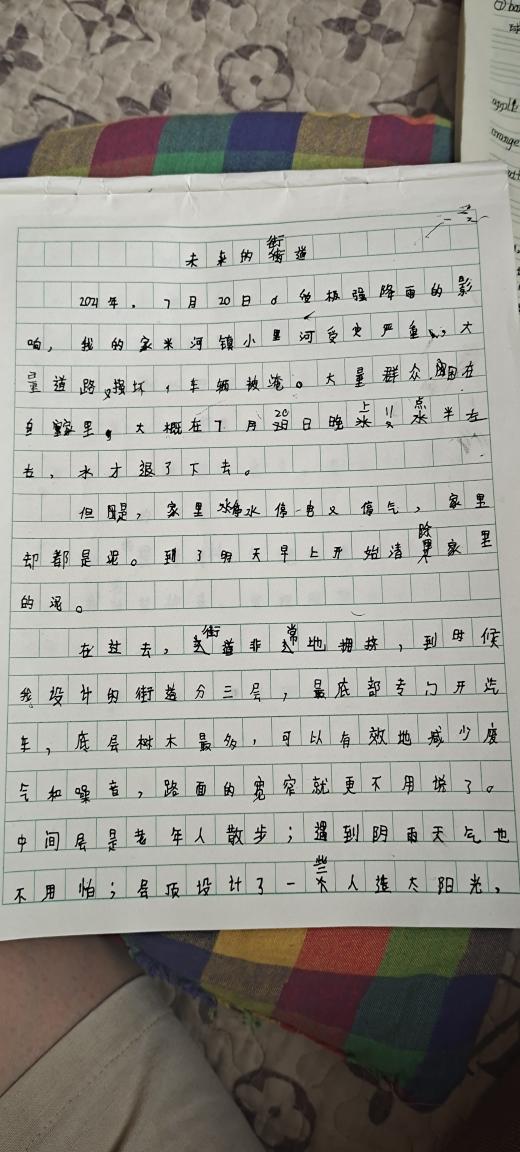 未来的街道
2021年,7月20日。受极强降雨的影
响,我的家米河镇小里河受灾严重,大
量道路毁坏,车辆被淹。大量群众困在
自家里。大概在7月20日晚上11点半左
右,水才退了下去。
但是,家里停水停电又停气,家里
却都是泥。到了明天早上开始清除家里
的泥。
在过去,街道非常地拥挤,到时候
我设计的街道分三层,最底部专门开汽
车,底层树木最多,可以有效地减少废
气和噪音,路面的宽窄就更不用说了。
中间层是老年人散步;遇到阴雨天气也
不用怕;层顶设计了一些人造太阳光,